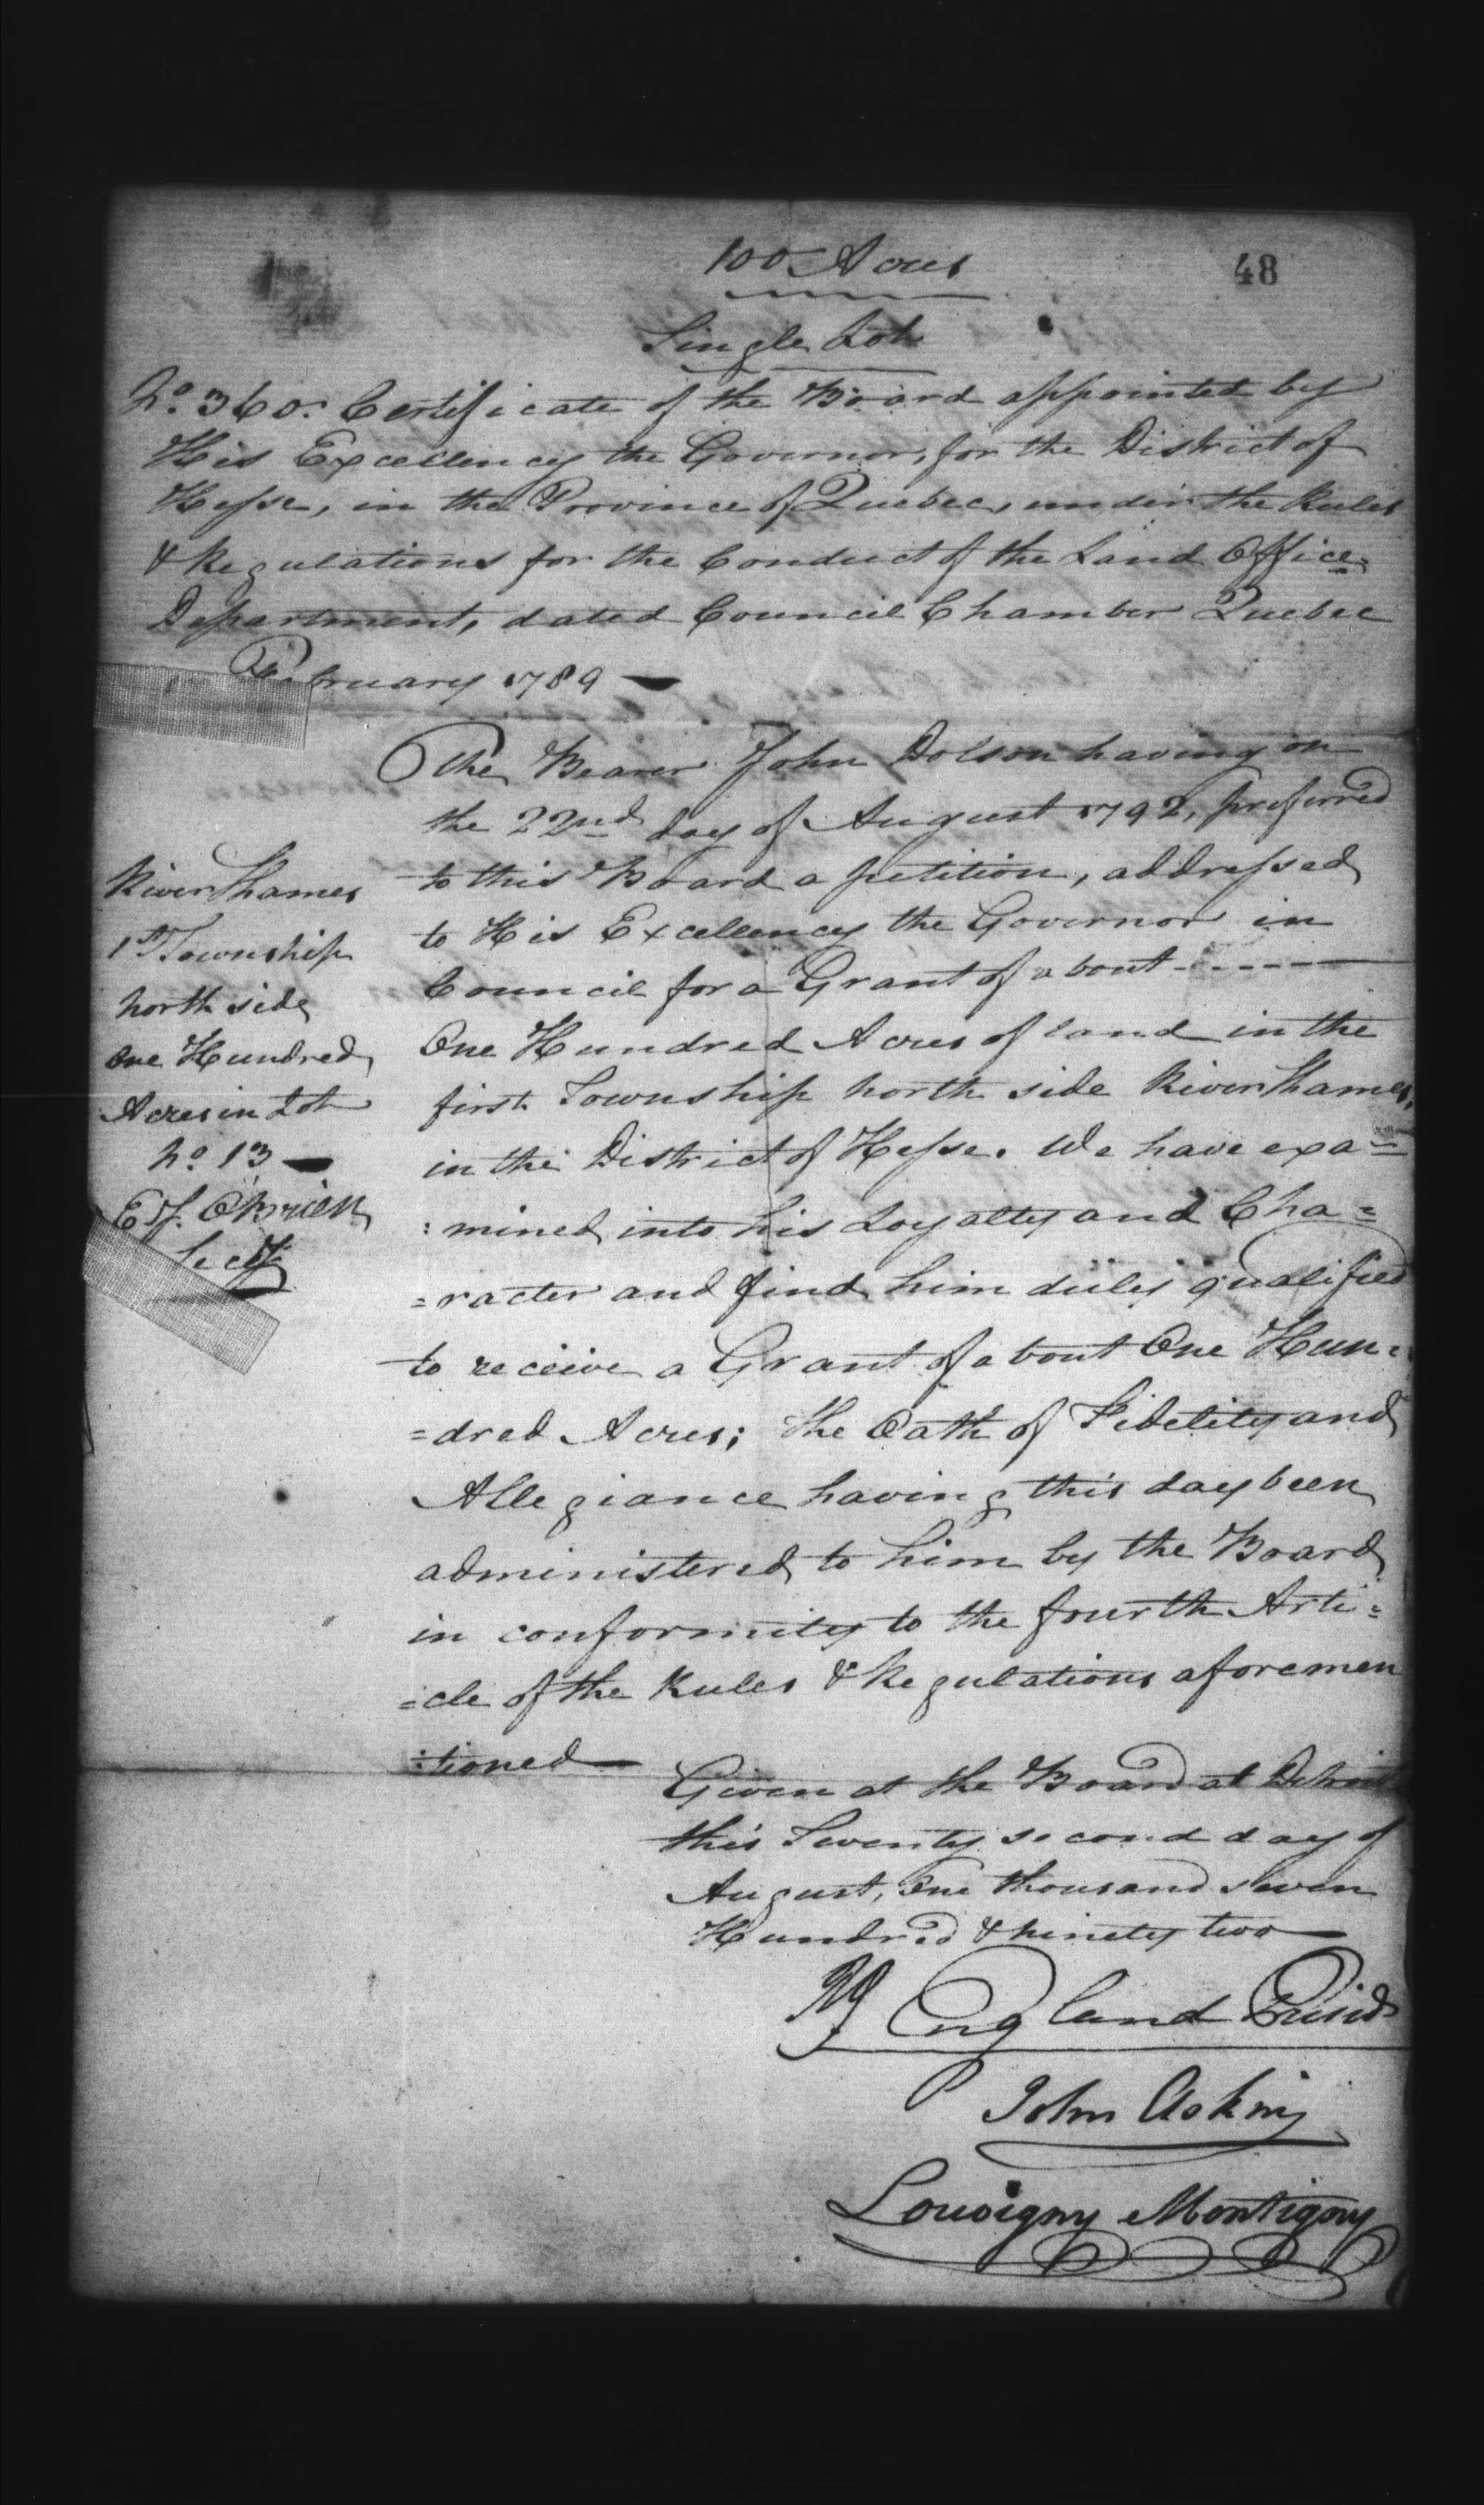 100 Acres
48
Single Lot
No. 360. Certificate of the Board appointed by
His Excellency the Governor, for the District of
Hesse, in the Province of Quebec, under the Rules
& Regulations for the Conduct of the Land Office
Department, dated Council Chamber Quebec
February 1789 —
The Bearer John Dolson having on
the 22nd day of August 1792, preferred
to this Board a petition, addressed
to His Excellency the Governor in
Council for a Grant of about - - - - -
One Hundred Acres of land in the
first Township north side River Thames,
in the District of Hesse. We have exa=
=mined into his Loyalty and Cha=
=racter and find him duly qualified
to receive a Grant of about One Hun=
=dred Acres; the Oath of Fidelity and
Allegiance having this day been
administered to him by the Board
in conformity to the fourth Arti=
=cle of the Rules & Regulations aforemen
=tioned —
River Thames
1st Township
north side
One Hundred
Acres in Lot
No. 13 —
E. J. O'Brien
Secy
Given at the Board at Detroit
this Twenty second day of
August, One thousand seven
Hundred & ninety two —
R England Presidt
John Askin
Louvigny Montigny